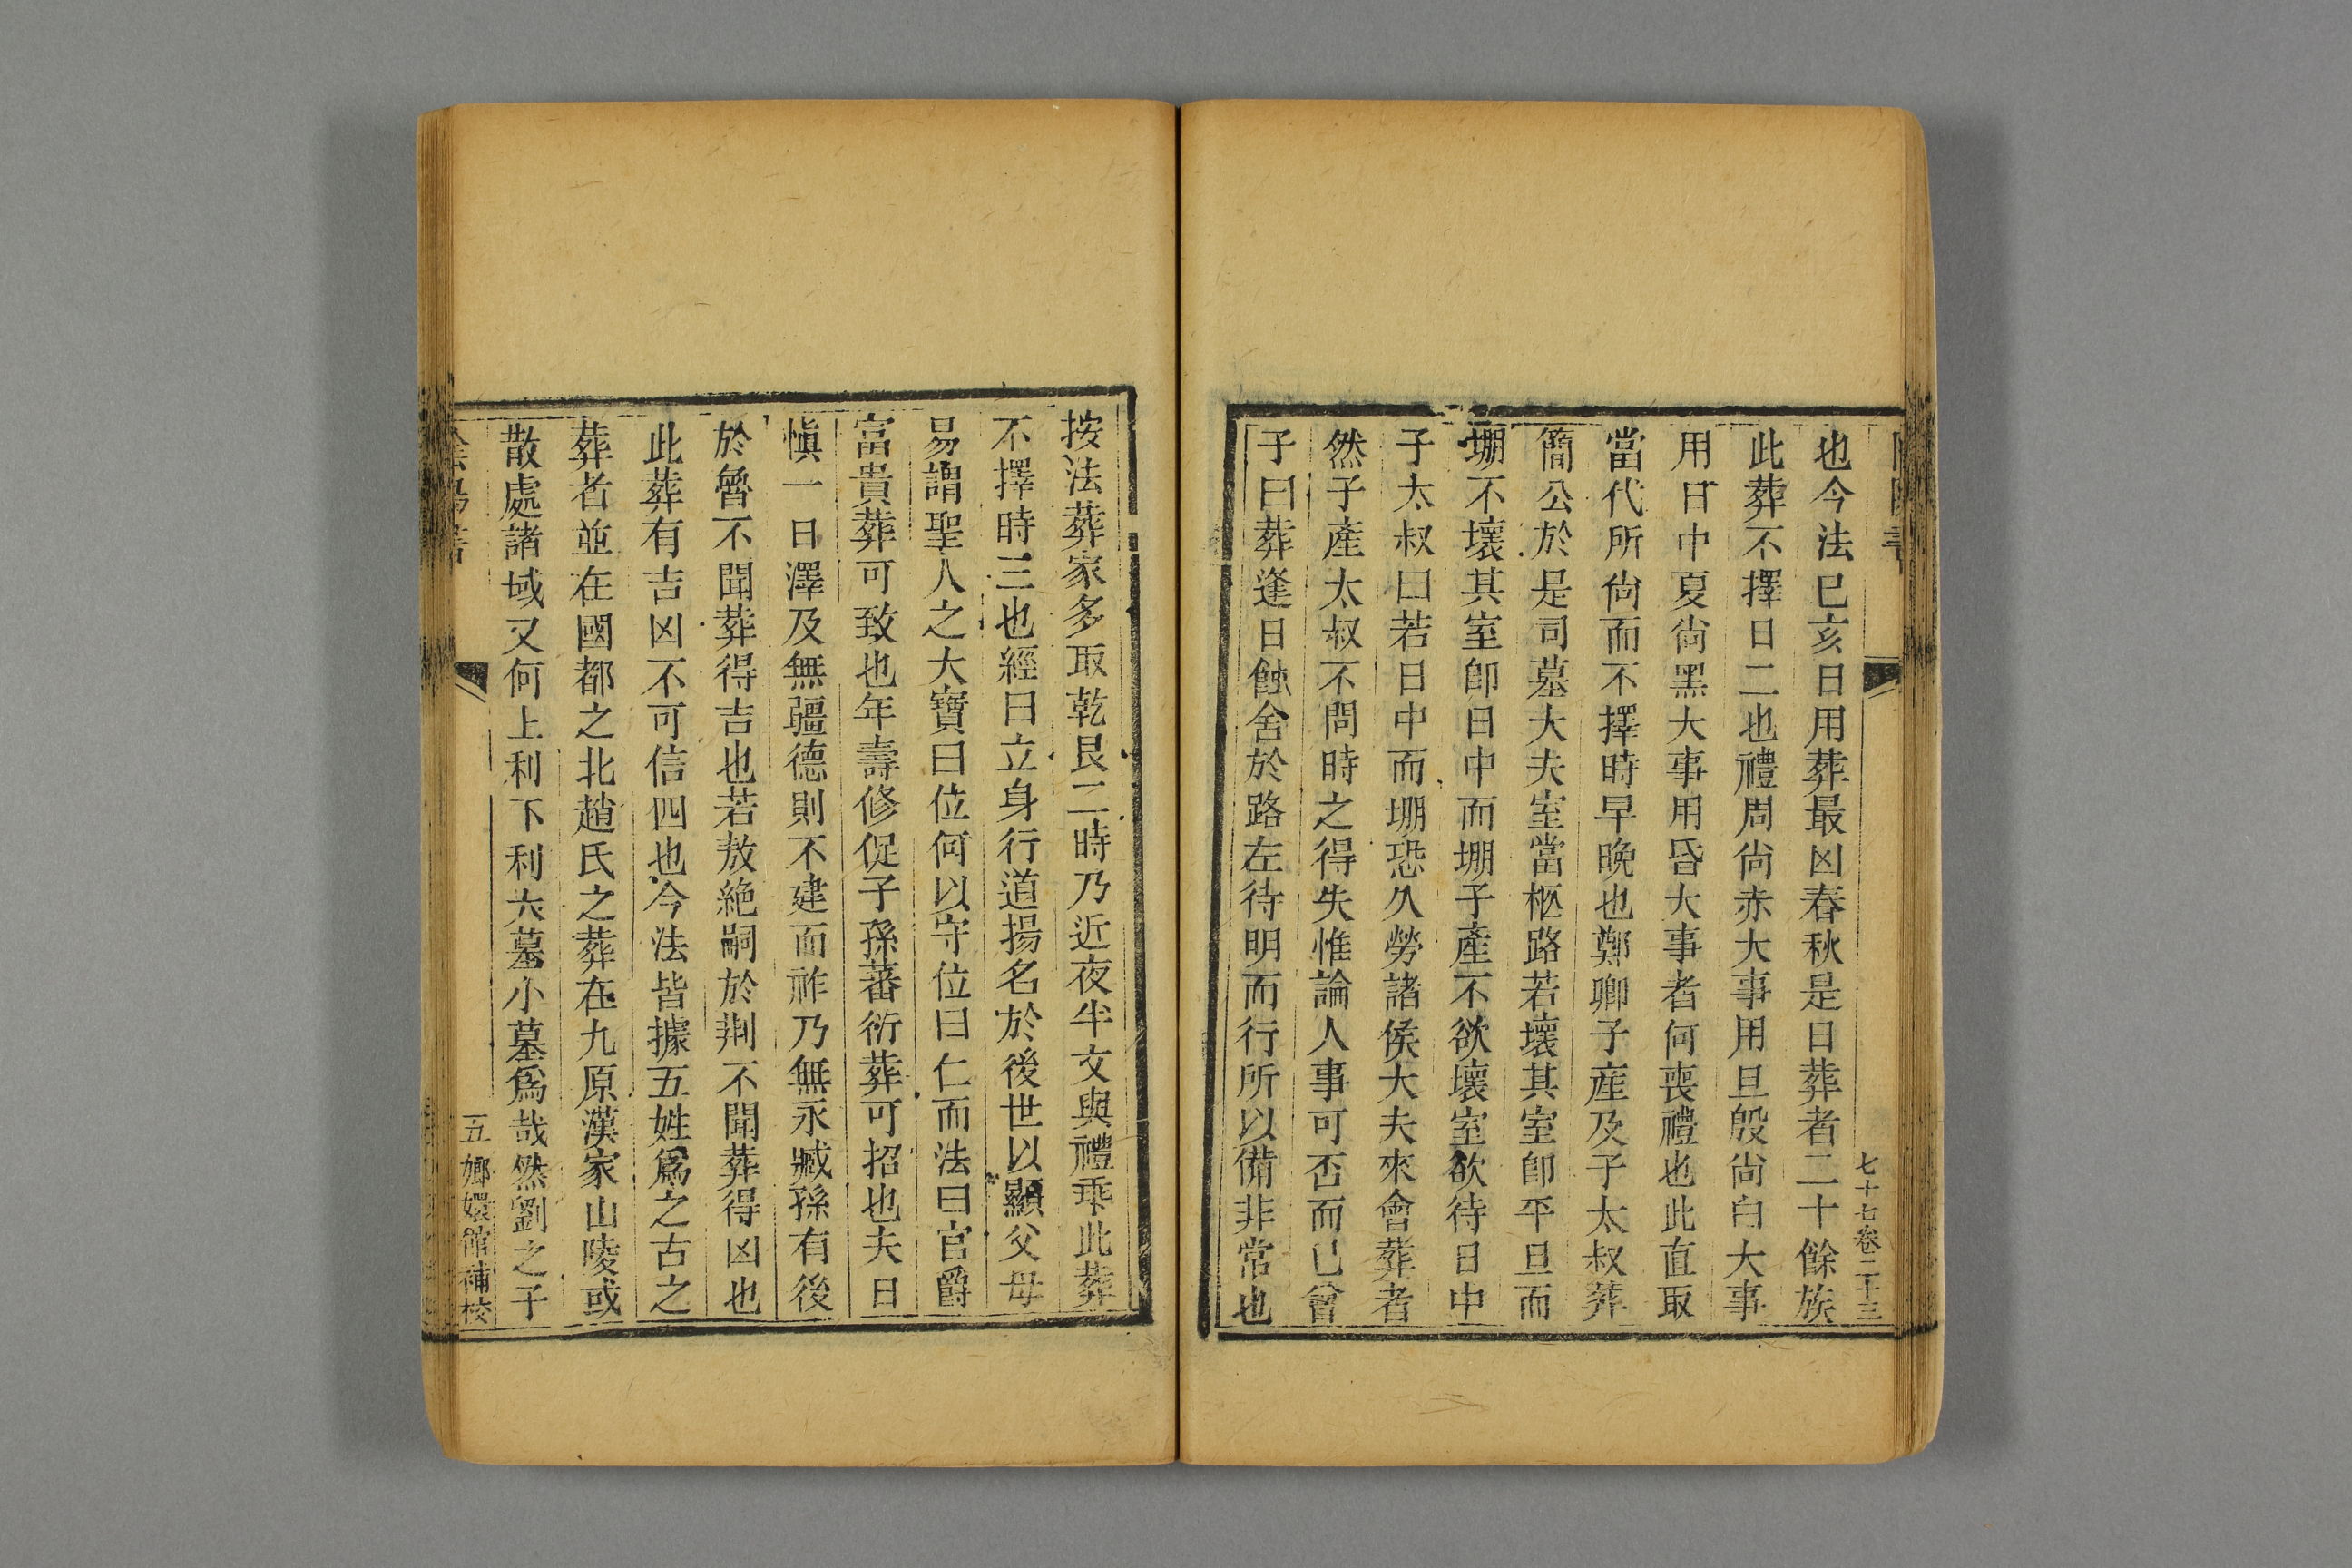 七十七卷二十三
也今法巳亥日用葬最凶春秋是日葬者二十餘族
此葬不擇日二也禮周尙赤大事用旦殷尙白大事
用日中夏尙黑大事用昏大事者何喪禮也此直取
當代所尙而不擇時早晚也鄭卿子產及子太叔葬
簡公於是司墓大夫室當柩路若壞其室卽平旦而
堋不壞其室卽日中而堋子產不欲壞室欲待日中
子太叔曰若日中而堋恐久勞諸侯大夫來會葬者
然子產太叔不問時之得失惟論人事可否而已曾
子曰葬逢日蝕舍於路左待明而行所以備非常也
按法葬家多取乾艮二時乃近夜半文與禮乖此葬
不擇時三也經曰立身行道揚名於後世以顯父母
易謂聖人之大寶曰位何以守位曰仁而法曰官爵
富貴葬可致也年壽修促子孫蕃衍葬可招也夫日
愼一日澤及無疆德則不建而祚乃無永臧孫有後
於魯不聞葬得吉也若敖絶嗣於荆不聞葬得凶也
此葬有吉凶不可信四也今法皆據五姓爲之古之
葬者並在國都之北趙氏之葬在九原漢家山陵或
散處諸域又何上利下利大墓小墓爲哉然劉之子
五 嫏嬛館補校